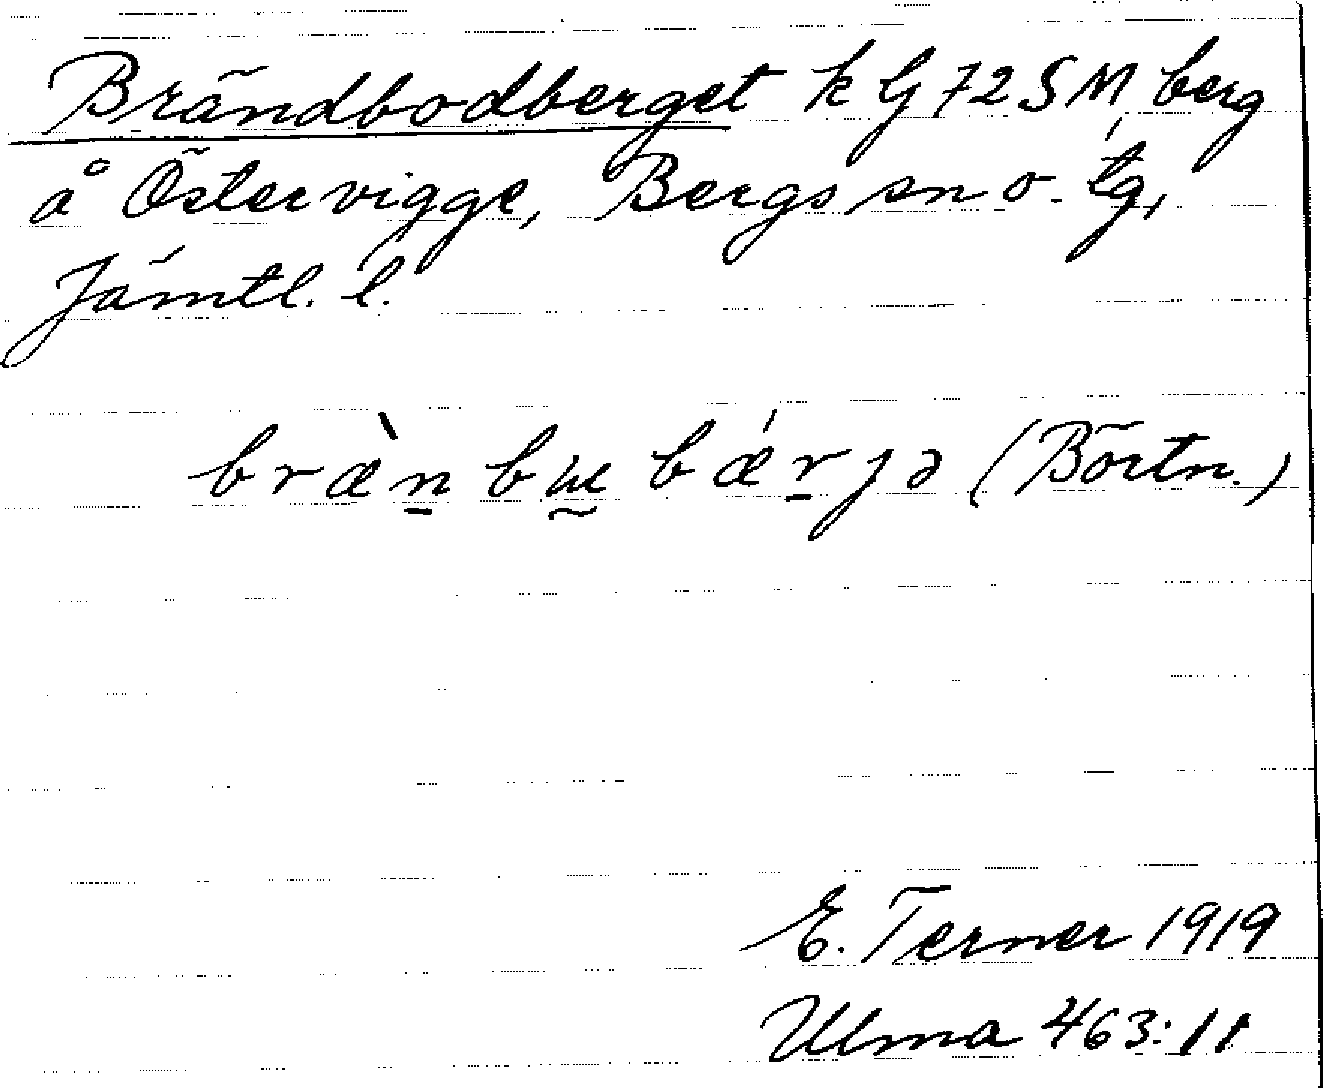 Brändbodberget k G 72 S M, berg
å Östervigge, Bergs sn o. tg,
Jämtl. l.
bræ̀n̲bɯ̰bǽr̲jə (Börtn.)
E. Terner 1919
Ulma 463:11